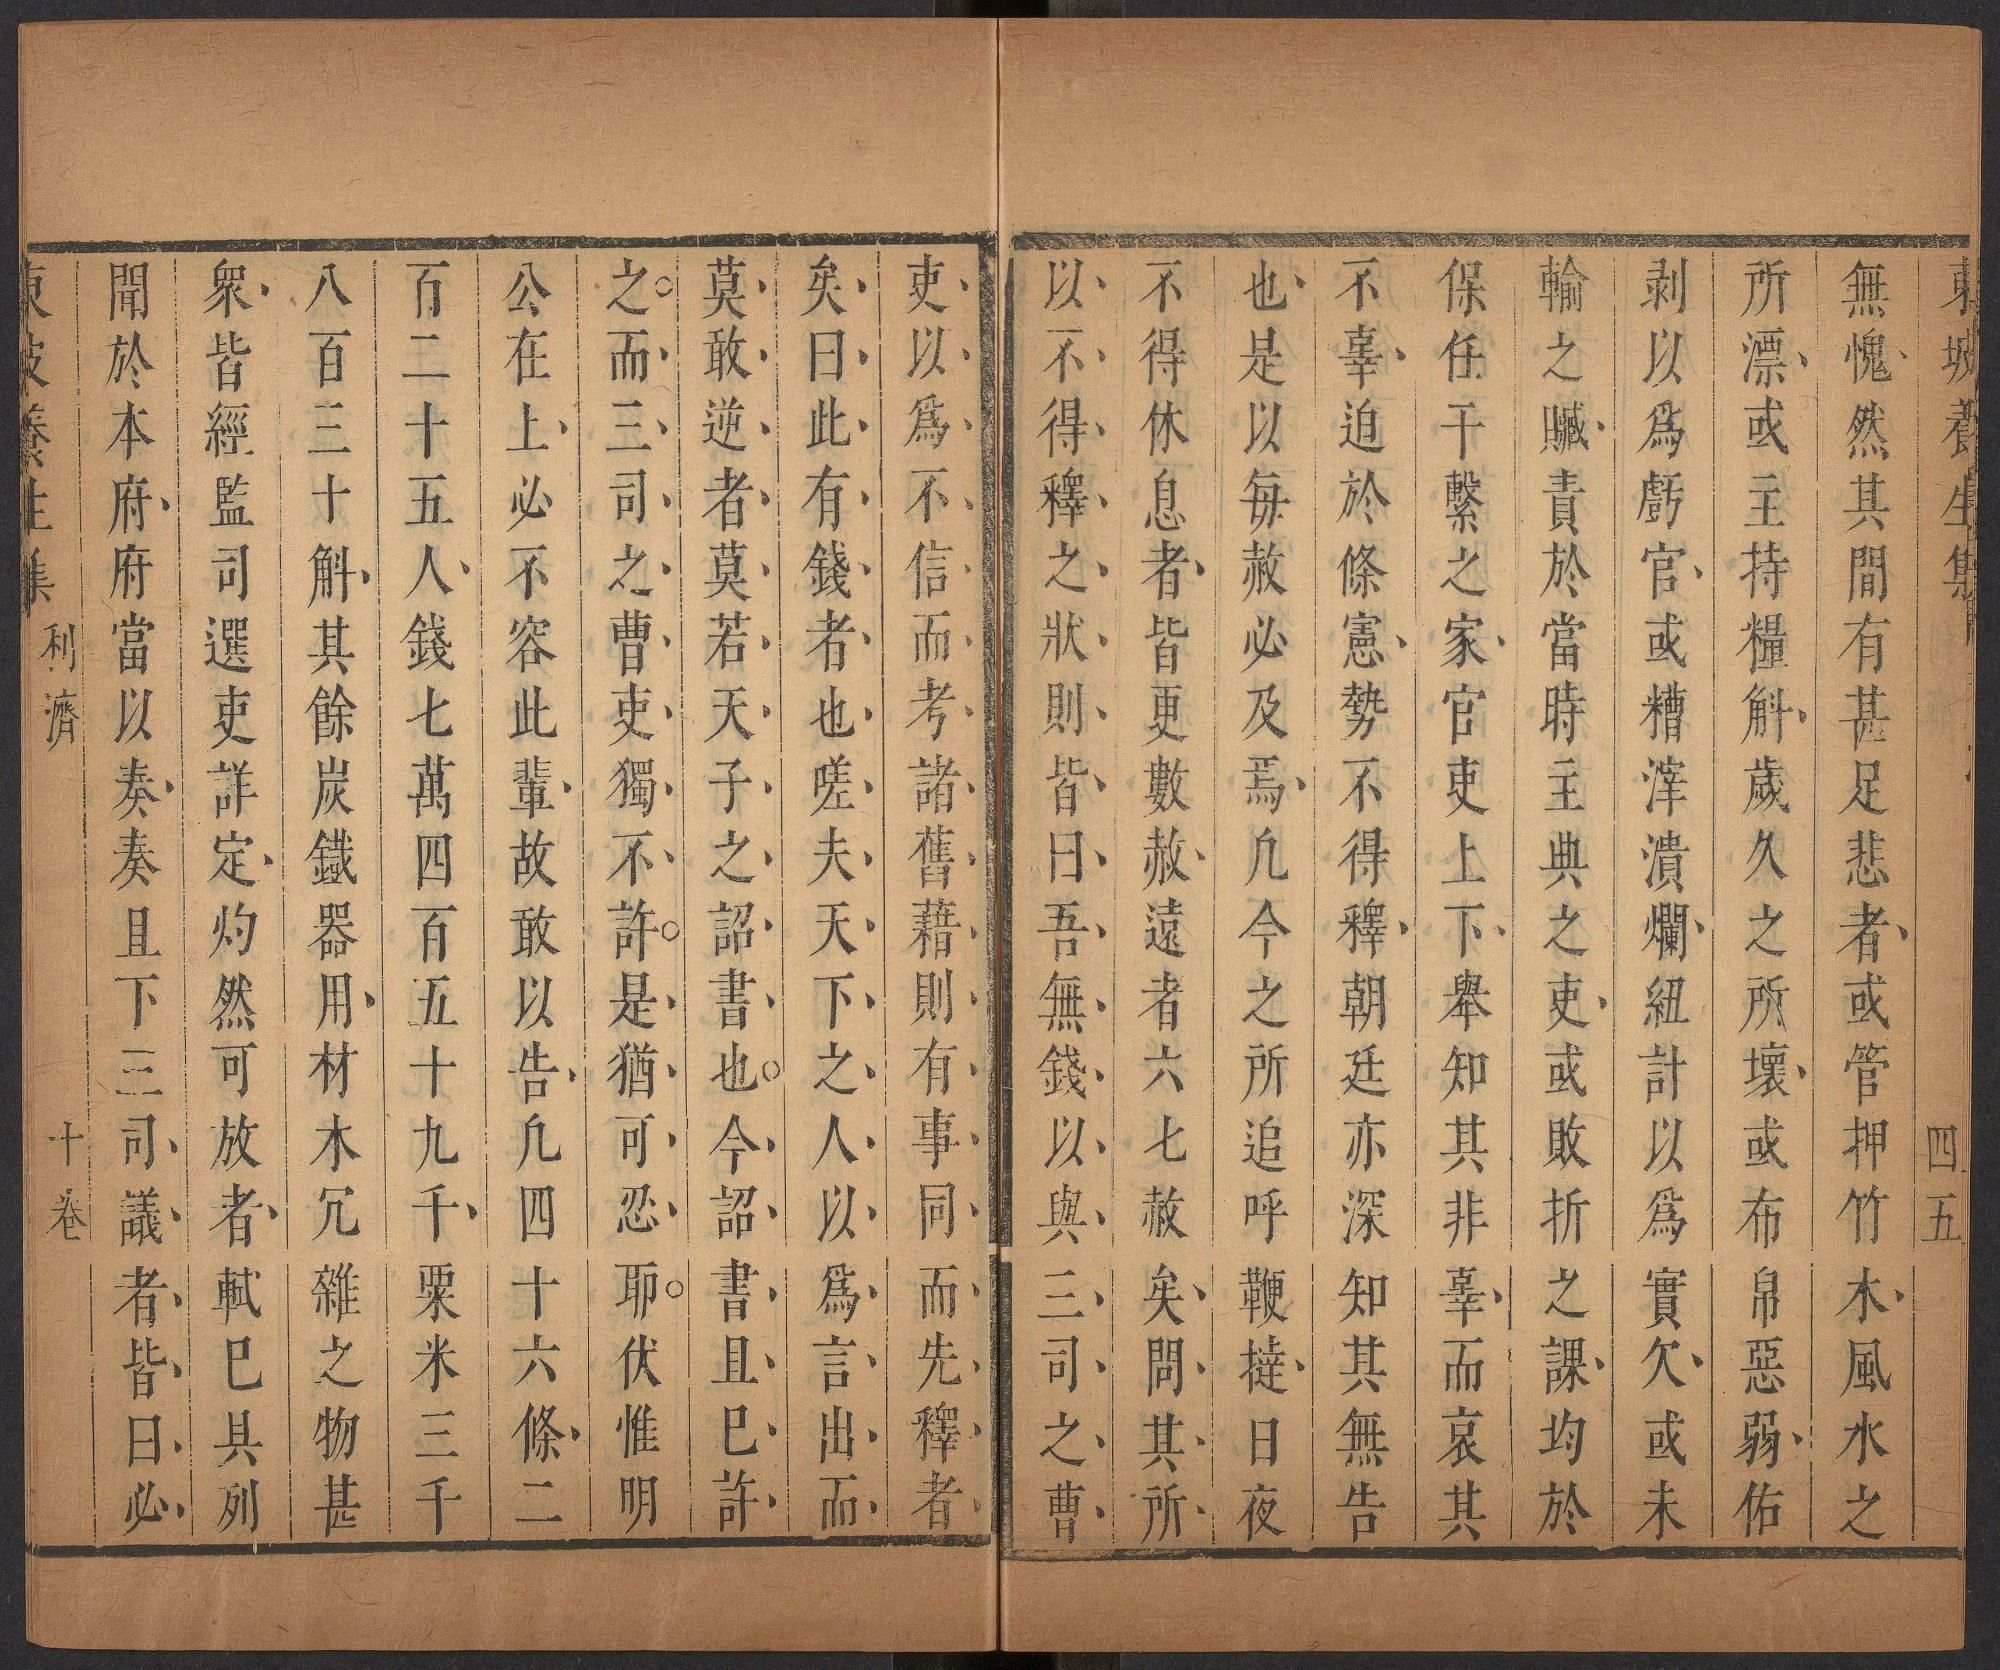 東坡養生集 四五
無愧然其間有甚足悲者或管押竹木風水之
所漂或主持糧斛歲久之所壞或布帛惡弱佑
剥以爲虧官或糟滓潰爛紐計以爲實欠或未
輸之贓責於當時主典之吏或敗折之課均於
保任干繫之家官吏上下舉知其非辜而哀其
不辜迫於條憲勢不得釋朝廷亦深知其無告
也是以每赦必及焉凡今之所追呼鞭撻日夜
不得休息者皆更數赦遠者六七赦矣問其所
以不得釋之狀則皆曰吾無錢以與三司之曹
吏以爲不信而考諸舊藉則有事同而先釋者
矣曰此有錢者也嗟夫天下之人以爲言出而
莫敢逆者莫若天子之詔書也今詔書且巳許
之而三司之曹吏獨不許是猶可忍耶伏惟明
公在上必不容此輩故敢以告凡四十六條二
百二十五人錢七萬四百五十九千粟米三千
八百三十斛其餘炭鐵器用材木冗雜之物甚
衆皆經監司選吏詳定灼然可放者軾巳具列
聞於本府府當以奏奏且下三司議者皆曰必
東坡養生集 利濟 十卷